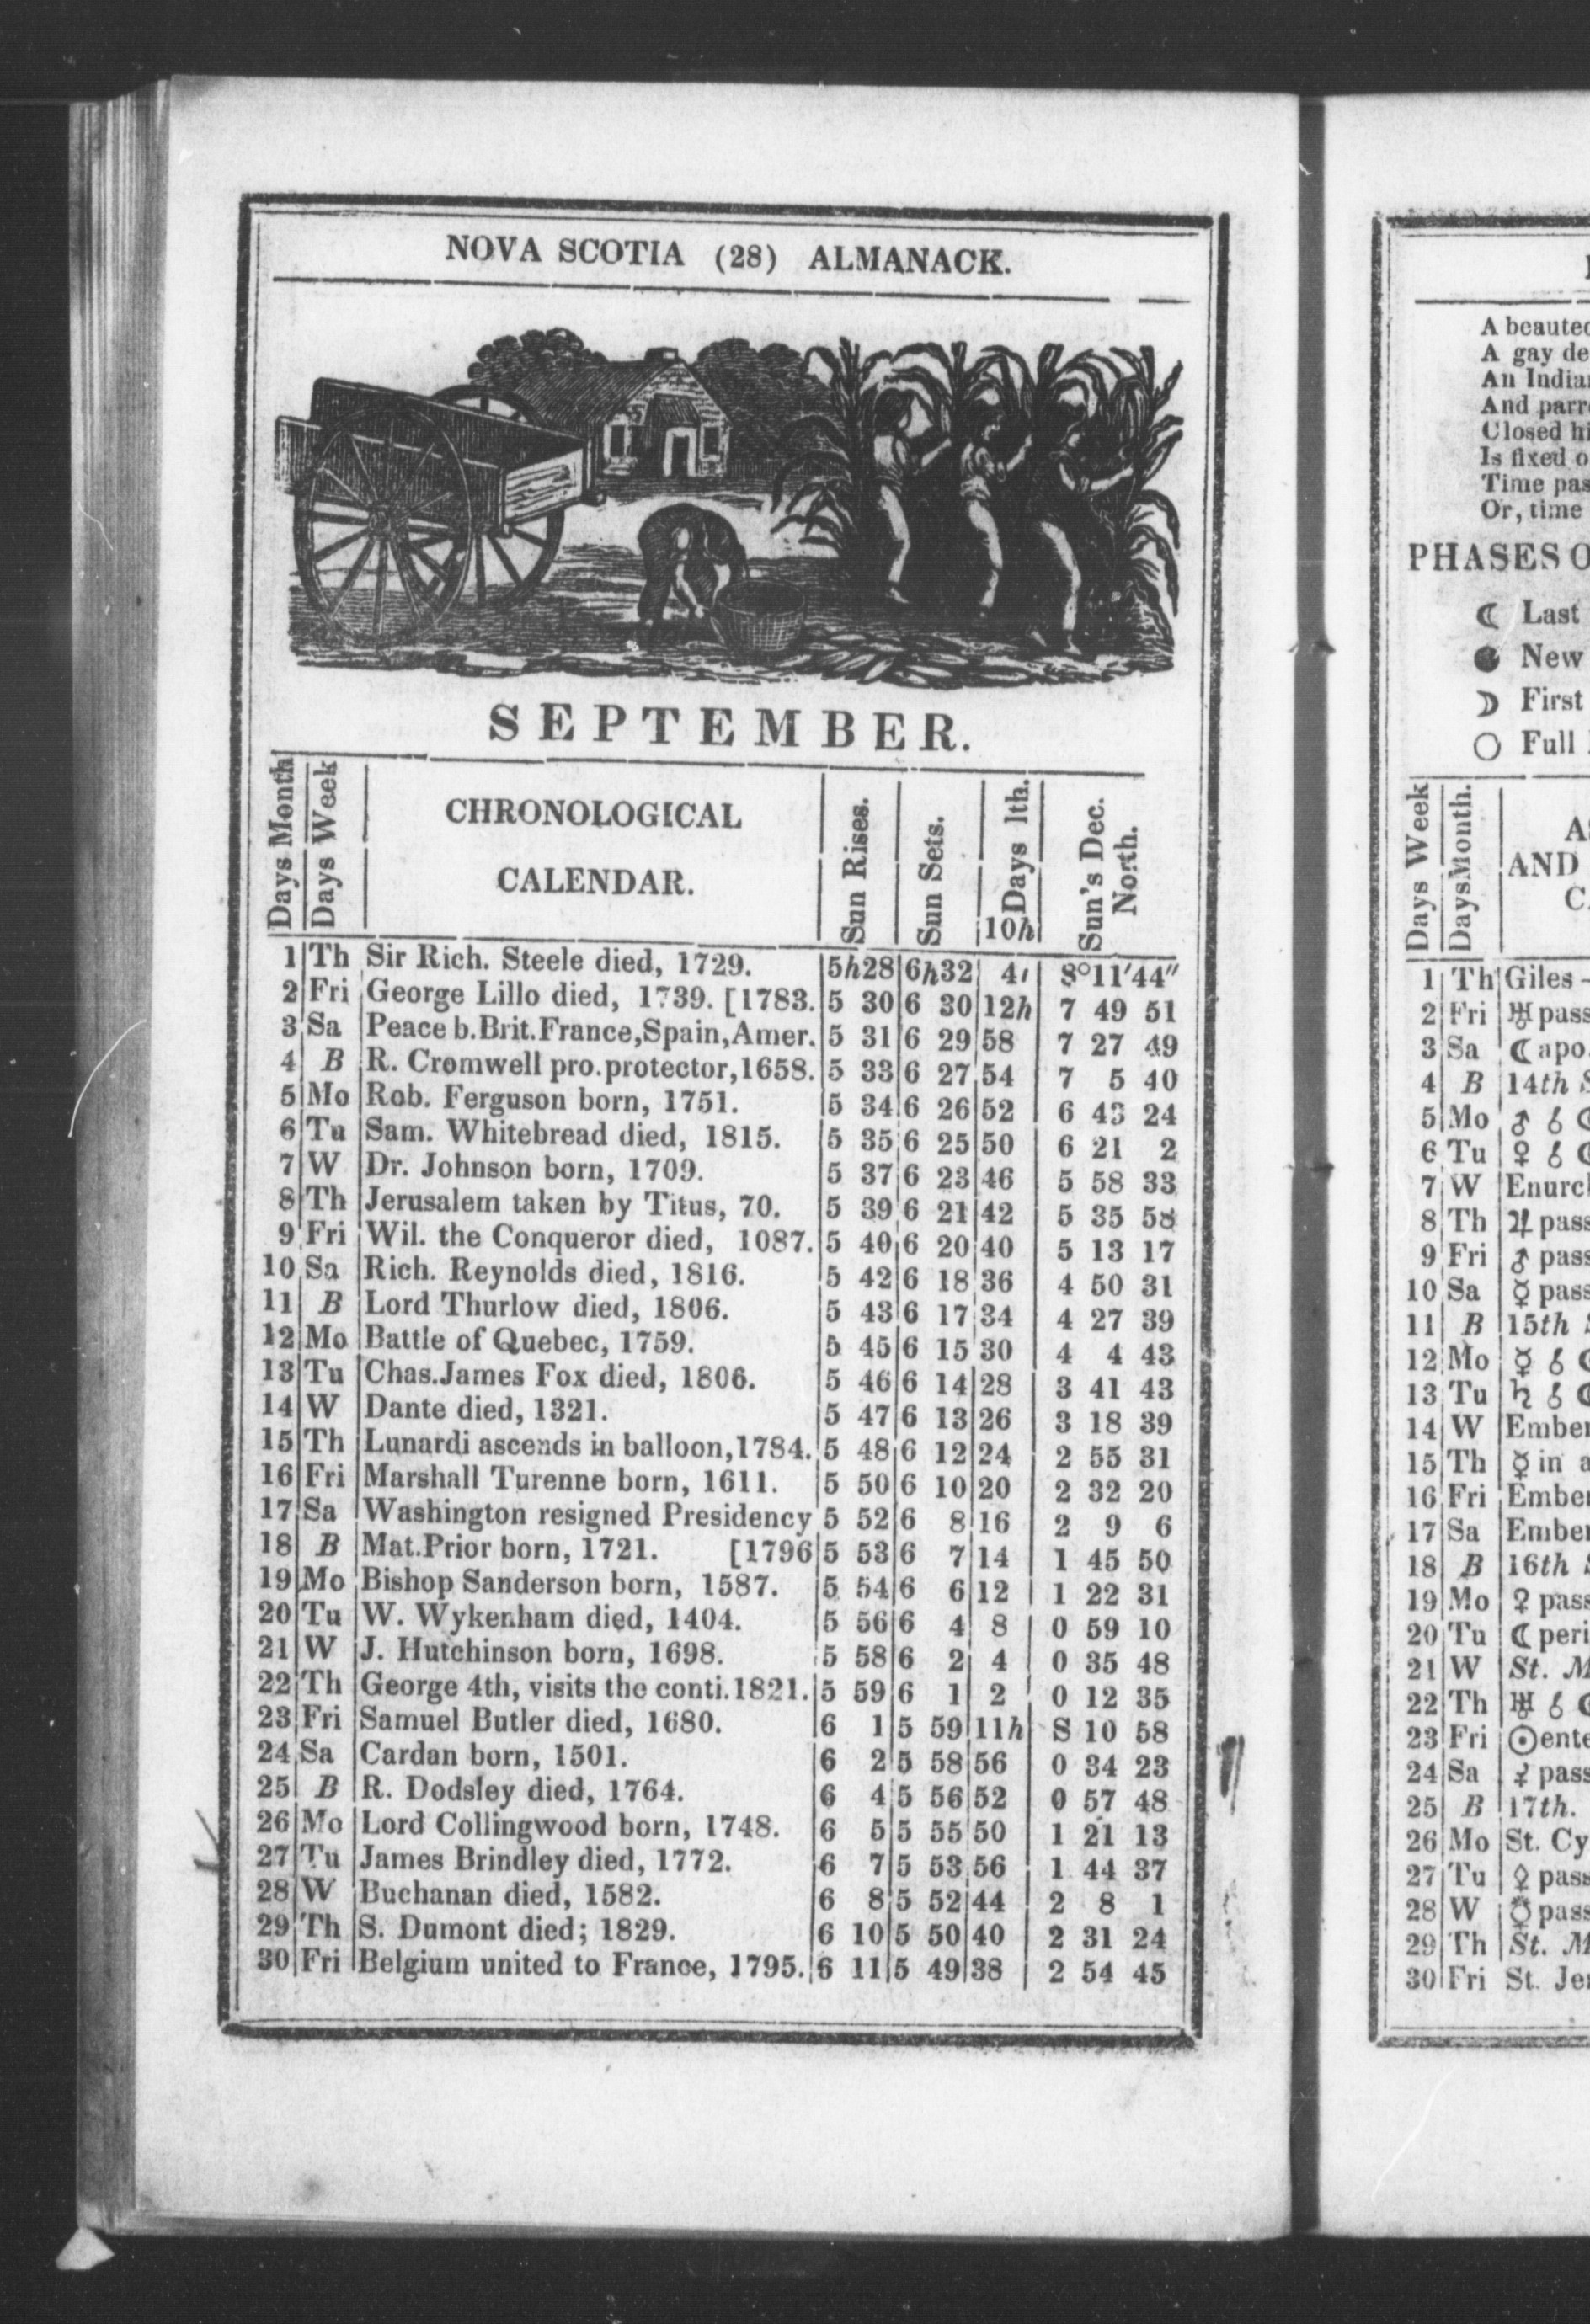 NOVA SCOTIA (28) ALMANACK.
SEPTEMBER.
Days Month
Days Week
CHRONOLOGICAL
CALENDAR.
Sun Rises.
Sun Sets.
Days lth.
10h
Sun's Dec.
North.
1 Th Sir Rich. Steele died, 1729. 5h28 6h32 4' 8°11'44"
2 Fri George Lillo died, 1739. [1783. 5 30 6 30 12h 7 49 51
3 Sa Peace b.Brit.France,Spain,Amer. 5 31 6 29 58 7 27 49
4 B R. Cromwell pro.protector,1658. 5 33 6 27 54 7 5 40
5 Mo Rob. Ferguson born, 1751. 5 34 6 26 52 6 43 24
6 Tu Sam. Whitebread died, 1815. 5 35 6 25 50 6 21 2
7 W Dr. Johnson born, 1709. 5 37 6 23 46 5 58 33
8 Th Jerusalem taken by Titus, 70. 5 39 6 21 42 5 35 58
9 Fri Wil. the Conqueror died, 1087. 5 40 6 20 40 5 13 17
10 Sa Rich. Reynolds died, 1816. 5 42 6 18 36 4 50 31
11 B Lord Thurlow died, 1806. 5 43 6 17 34 4 27 39
12 Mo Battle of Quebec, 1759. 5 45 6 15 30 4 4 43
13 Tu Chas.James Fox died, 1806. 5 46 6 14 28 3 41 43
14 W Dante died, 1321. 5 47 6 13 26 3 18 39
15 Th Lunardi ascends in balloon,1784. 5 48 6 12 24 2 55 31
16 Fri Marshall Turenne born, 1611. 5 50 6 10 20 2 32 20
17 Sa Washington resigned Presidency 5 52 6 8 16 2 9 6
18 B Mat.Prior born, 1721. [1796 5 53 6 7 14 1 45 50
19 Mo Bishop Sanderson born, 1587. 5 54 6 6 12 1 22 31
20 Tu W. Wykenham died, 1404. 5 56 6 4 8 0 59 10
21 W J. Hutchinson born, 1698. 5 58 6 2 4 0 35 48
22 Th George 4th, visits the conti.1821. 5 59 6 1 2 0 12 35
23 Fri Samuel Butler died, 1680. 6 1 5 59 11h S 10 58
24 Sa Cardan born, 1501. 6 2 5 58 56 0 34 23
25 B R. Dodsley died, 1764. 6 4 5 56 52 0 57 48
26 Mo Lord Collingwood born, 1748. 6 5 5 55 50 1 21 13
27 Tu James Brindley died, 1772. 6 7 5 53 56 1 44 37
28 W Buchanan died, 1582. 6 8 5 52 44 2 8 1
29 Th S. Dumont died; 1829. 6 10 5 50 40 2 31 24
30 Fri Belgium united to France, 1795. 6 11 5 49 38 2 54 45
A beauteo
A gay de
An India
And parr
Closed hi
Is fixed o
Time pas
Or, time
PHASES O
☾ Last
● New
☽ First
○ Full
Days Week
DaysMonth.
AND
1 Th Giles -
2 Fri ♅ pass
3 Sa ☾ apo.
4 B 14th S
5 Mo ♂ ☌ ☾
6 Tu ♀ ☌ ☾
7 W Enurc
8 Th ♃ pass
9 Fri ♂ pass
10 Sa ☿ pass
11 B 15th S
12 Mo ☿ ☌ ☾
13 Tu ♄ ☌ ☾
14 W Ember
15 Th ☿ in a
16 Fri Ember
17 Sa Ember
18 B 16th S
19 Mo ♀ pass
20 Tu ☾ peri
21 W St. M
22 Th ♅ ☌ ☾
23 Fri ☉ ente
24 Sa ⚳ pass
25 B 17th.
26 Mo St. Cy
27 Tu ⚴ pass
28 W pass
29 Th St. M
30 Fri St. Je